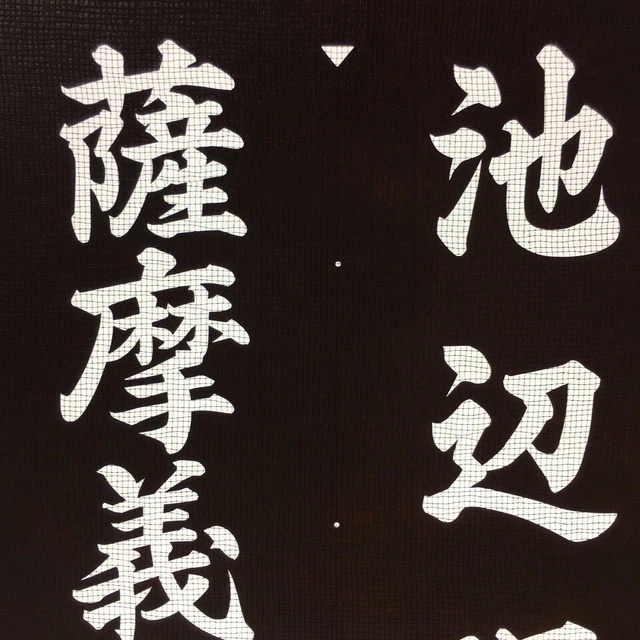 池辺
薩摩義